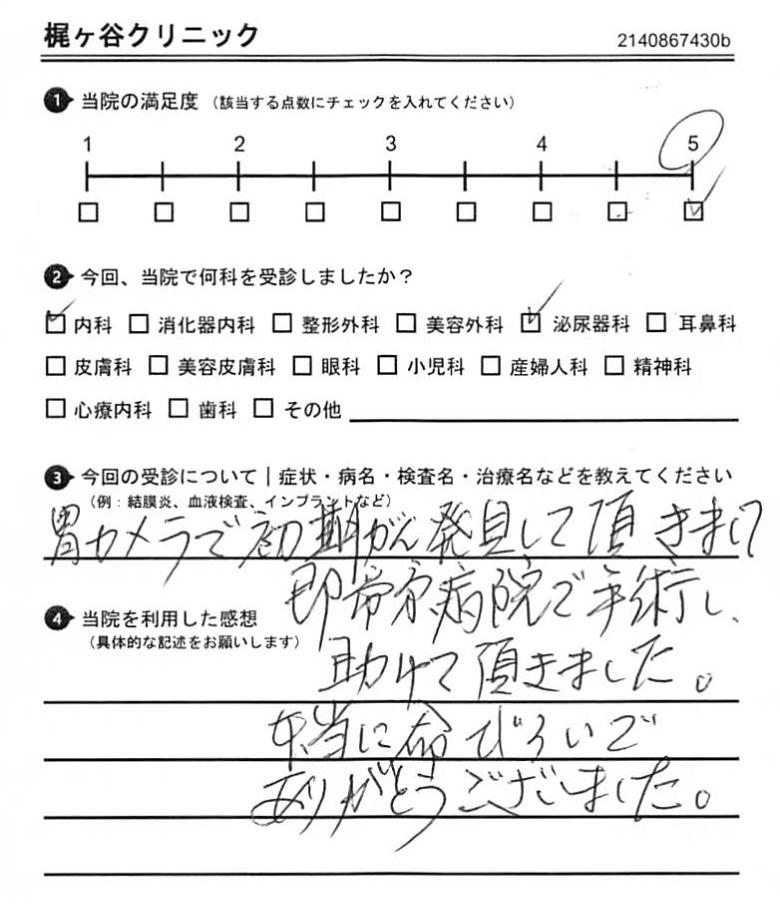 梶ヶ谷クリニック
2140867430b
1 当院の満足度 (該当する点数にチェックを入れてください)
1 2 3 4 5
2 今回、当院で何科を受診しましたか?
内科 消化器内科 整形外科 美容外科 泌尿器科 耳鼻科
皮膚科 美容皮膚科 眼科 小児科 産婦人科 精神科
心療内科 歯科 その他
3 今回の受診について|症状・病名・検査名・治療名などを教えてください
(例:結膜炎、血液検査、インプラントなど)
胃カメラで初期がん発見して頂きまして
即帝京病院で手術し、
4 当院を利用した感想
(具体的な記述をお願いします)
助けて頂きました。
本当に命びろいで
ありがとうございました。